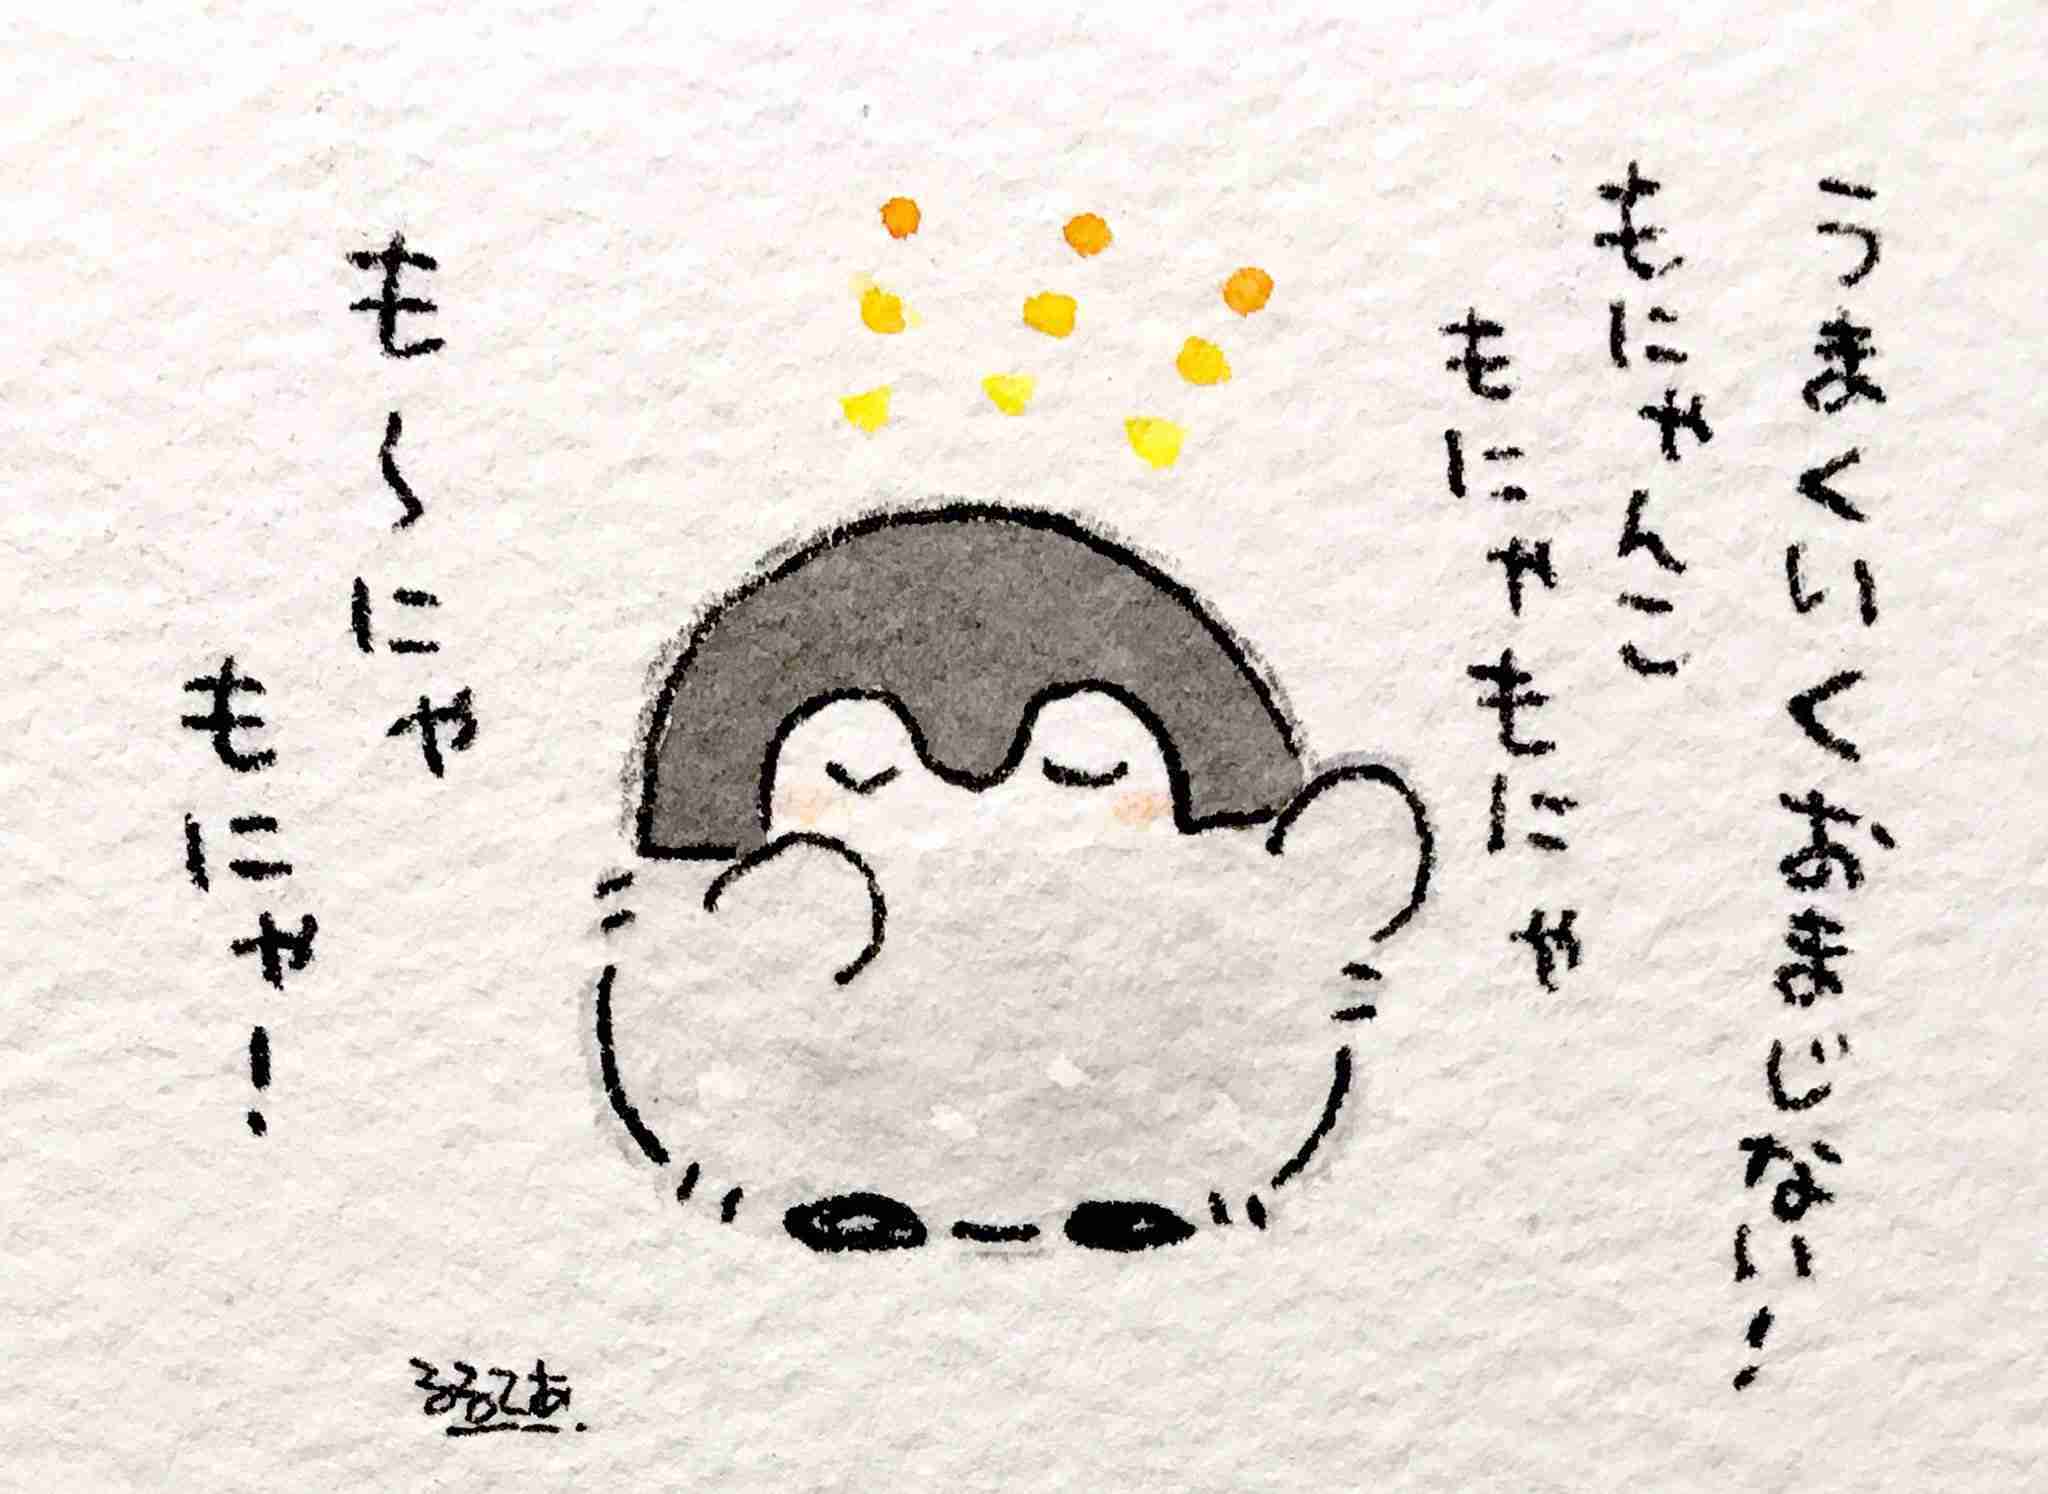 うまくいくおまじない!
もにゃんこ
もにゃもにゃ
も〜にゃ
もにゃー!
るるてあ.